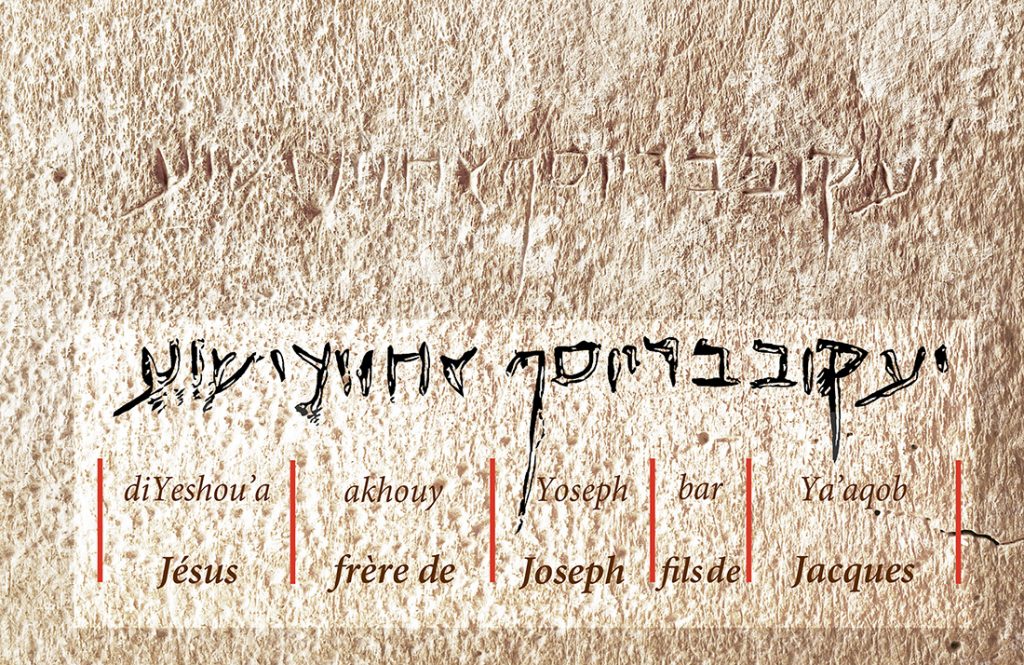 יעקוב בר יוסף אחוי דישוע
יעקוב בר יוסף אחוי דישוע
diYeshou’a akhouy Yoseph bar Ya’aqob
Jésus frère de Joseph fils de Jacques